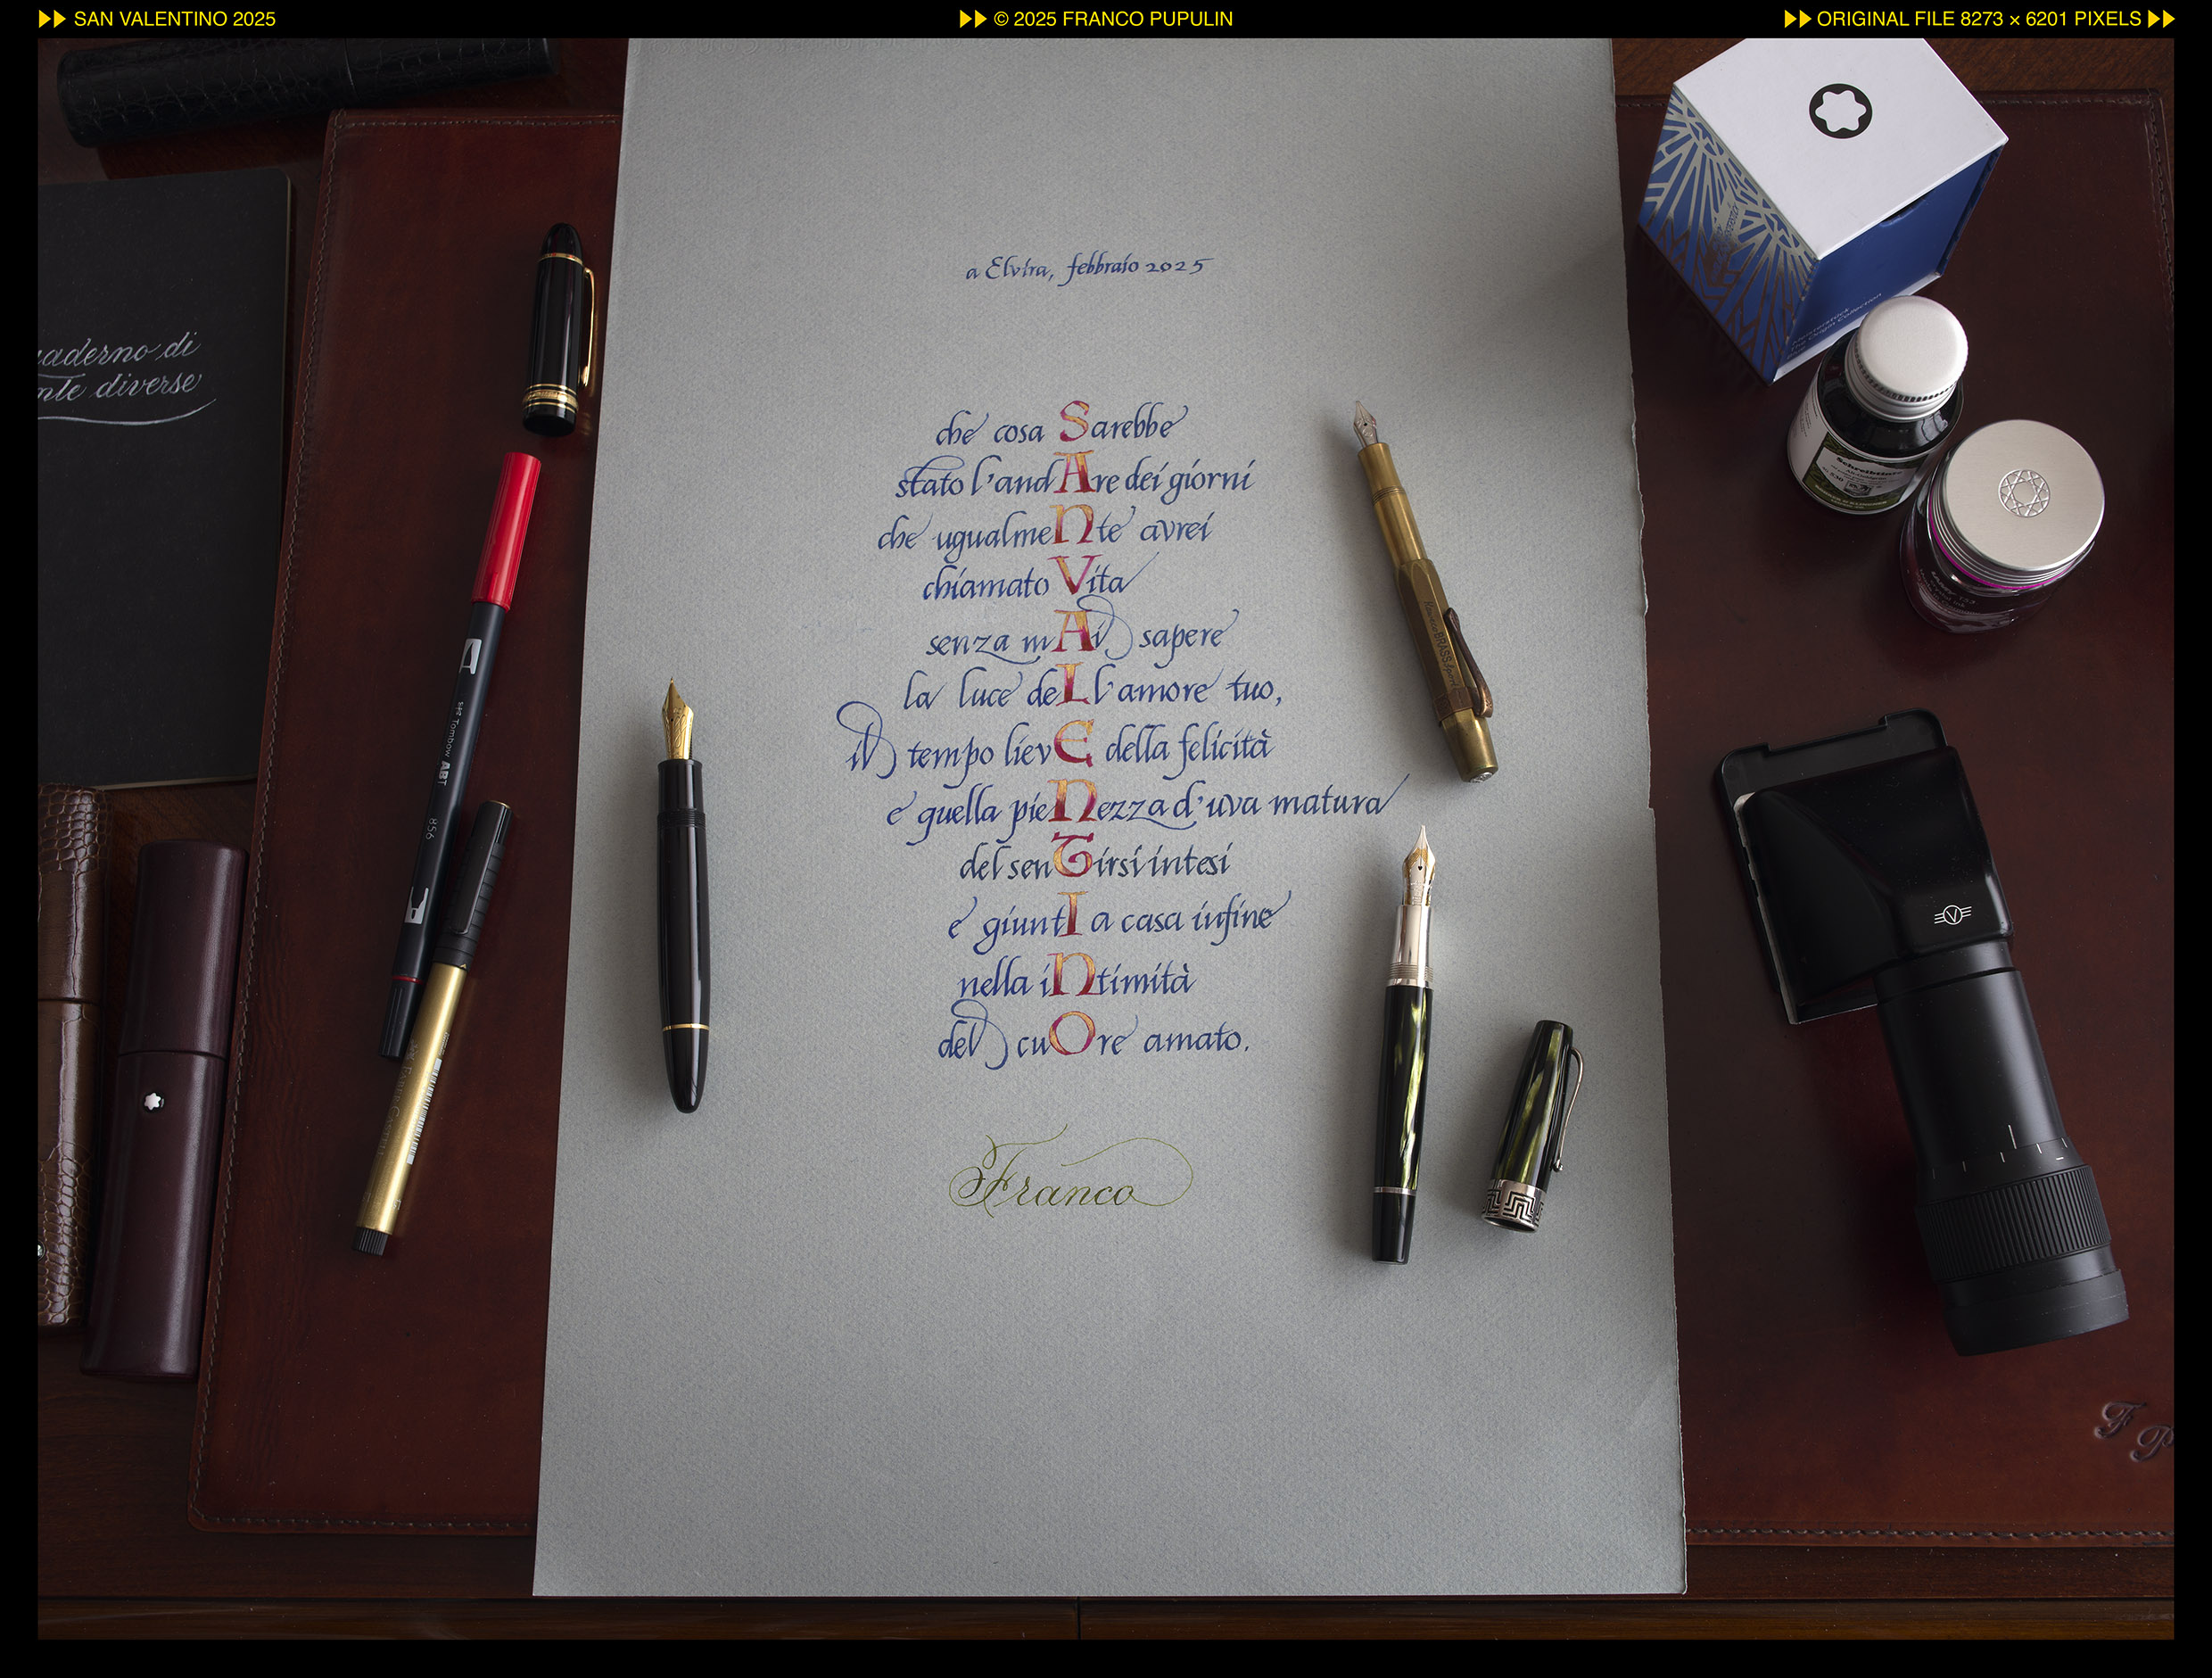 SAN VALENTINO 2025
© 2025 FRANCO PUPULIN
ORIGINAL FILE 8273 × 6201 PIXELS
a Elvira, febbraio 2025
che cosa Sarebbe
stato l'andAre dei giorni
che ugualmente avrei
chiamato Vita
senza mAi sapere
la luce deLl'amore tuo,
il tempo lievE della felicità
e quella pieNezza d'uva matura
del senTirsi intesi
e giuntI a casa infine
nella iNtimità
del cuOre amato.
Franco
uaderno di
nte diverse
Tombow ABT
856
Kaweco BRASS Sport
Meisterstück
The Origin Collection
Schreibtinte
F P